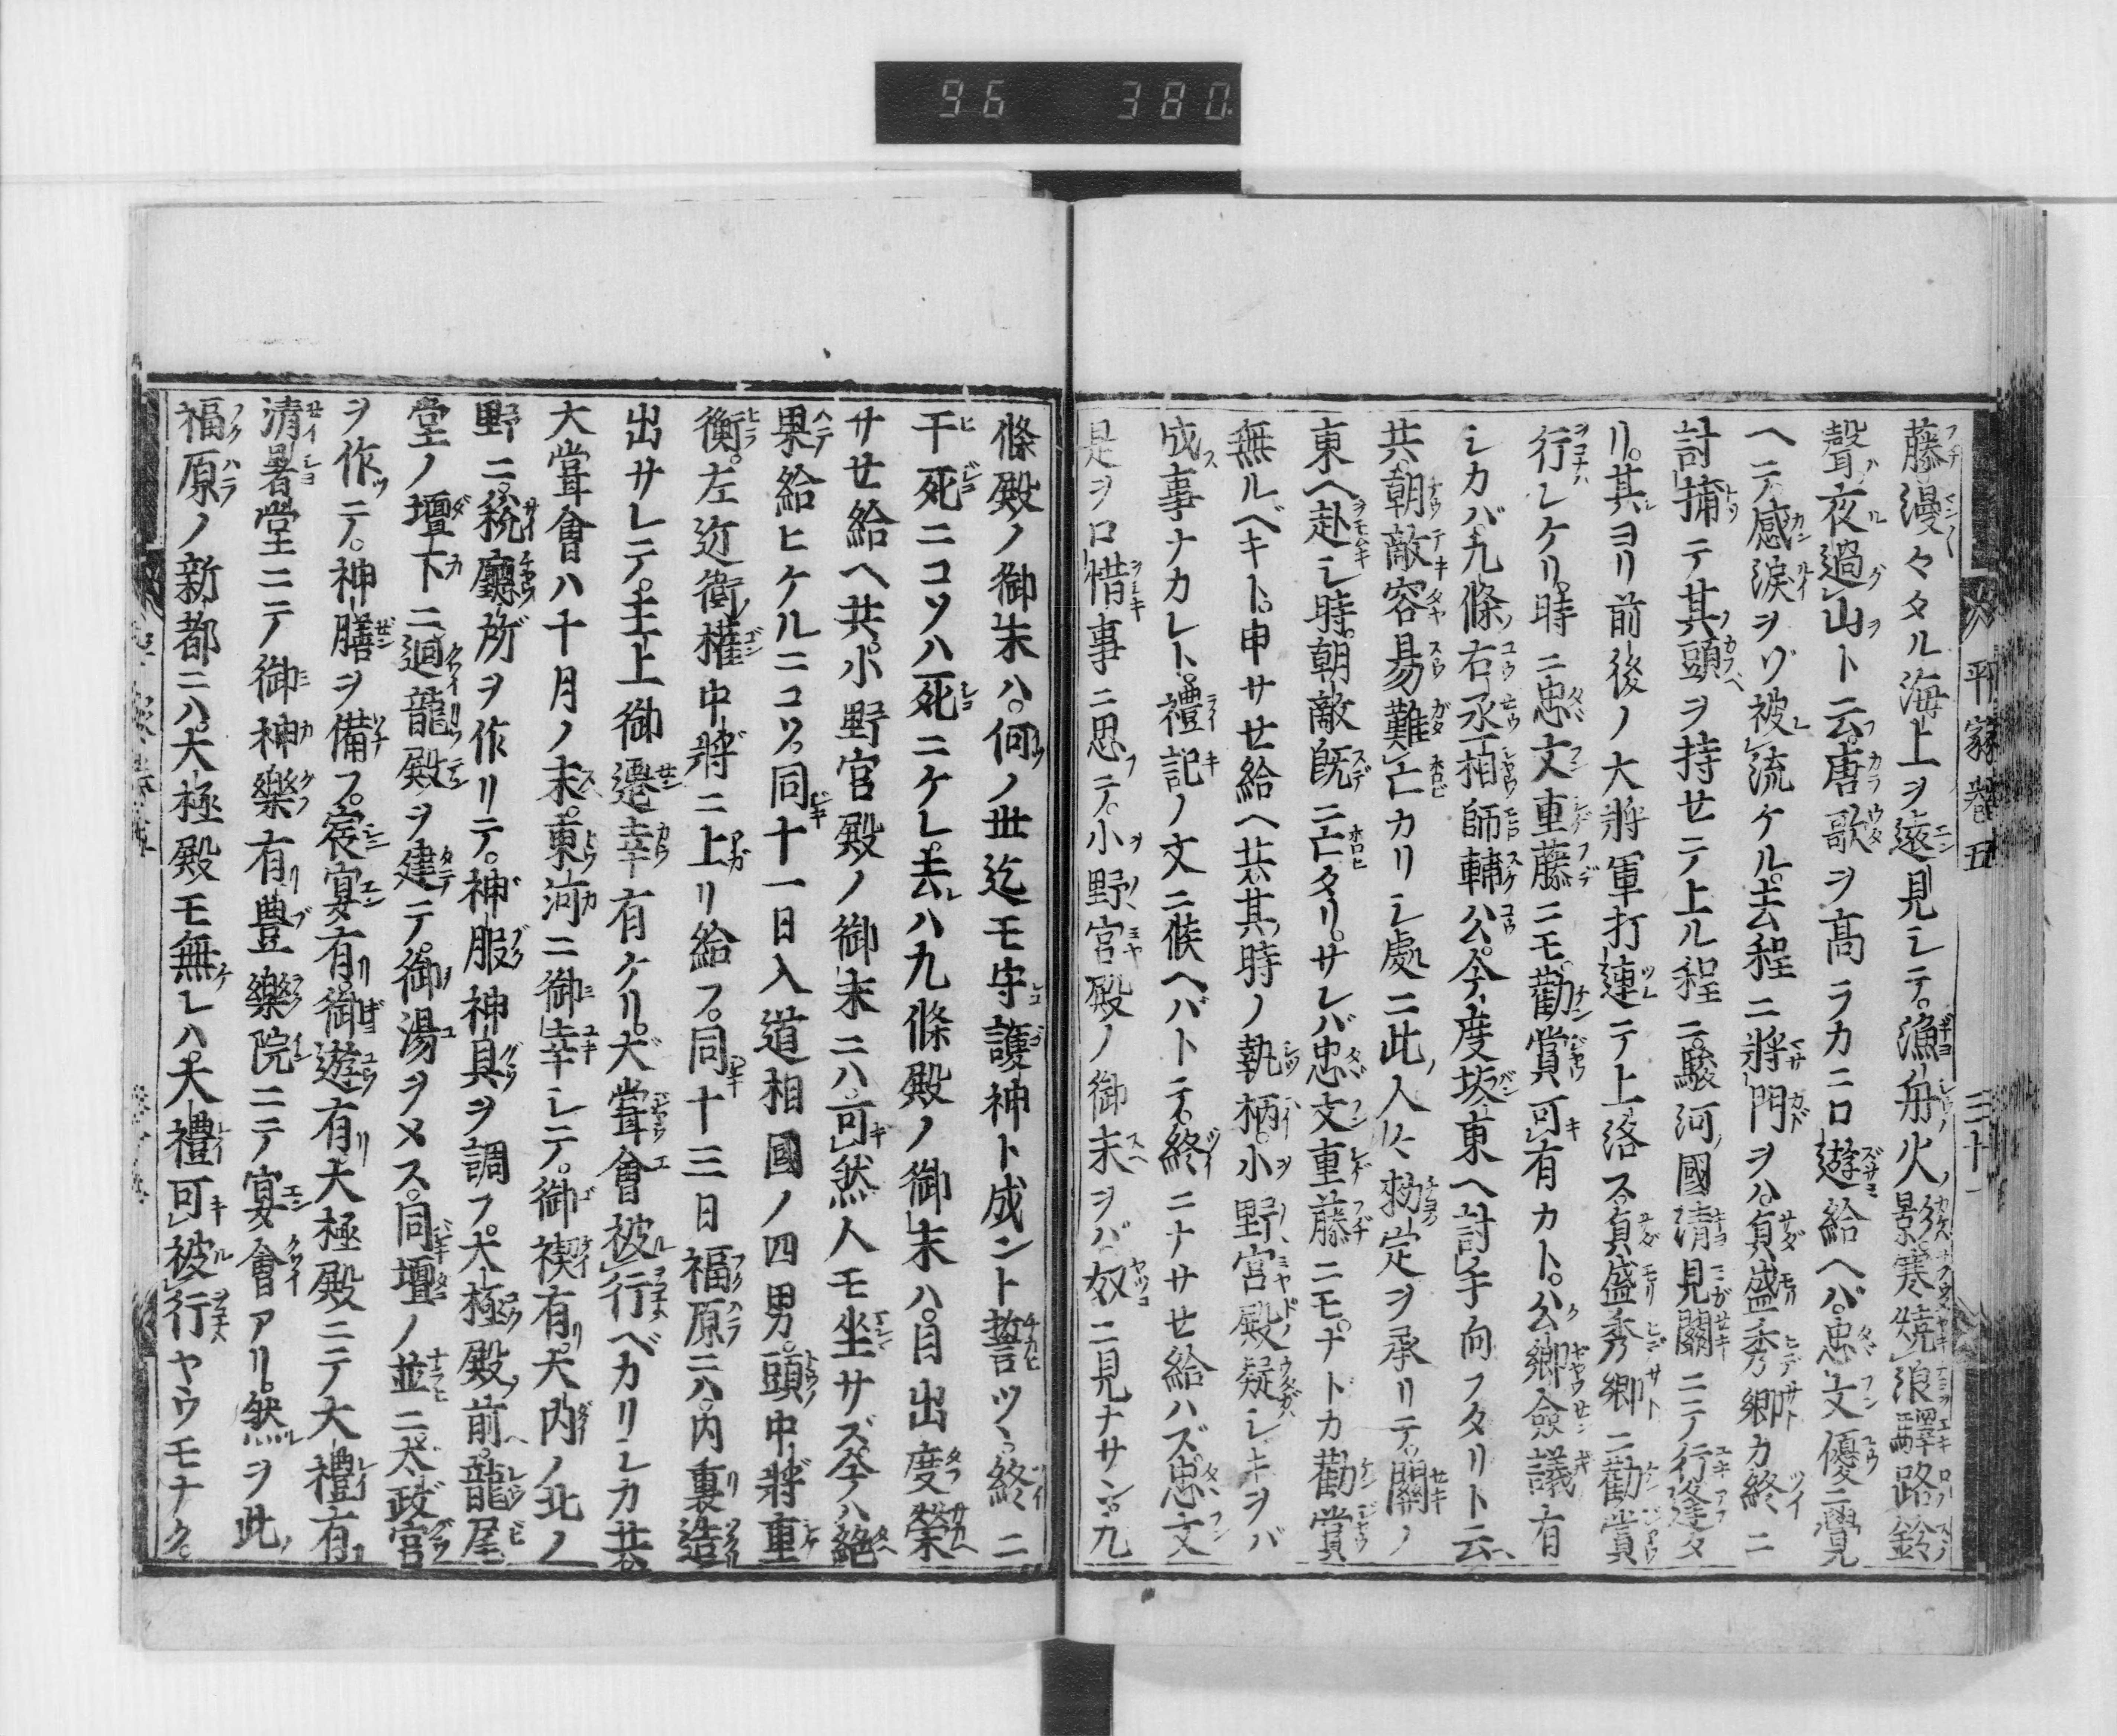 96 380
平家巻五 三十一
藤漫々タル海上ヲ遠見シテ。漁舟火景寒燒浪驛路鈴
聲夜過山ト云。唐歌ヲ髙ラカニ口遊給ヘバ。忠文優ニ覺
ヘテ感涙ヲゾ被流ケル。去程ニ將門ヲハ。貞盛秀卿カ終ニ
討捕テ其頭ヲ持セテ上ル程ニ。駿河國淸見關ニテ行逢タ
リ。其ヨリ前後ノ大將軍打連テ上洛ス。貞盛秀卿ニ勸賞
行レケリ。時ニ忠文重藤ニモ。勸賞可有カト。公卿僉議有
シカバ。九條右丞相師輔公。今度坂東ヘ討手向フタリト云
共。朝敵容易難亡カリシ處ニ此人々勅定ヲ承リテ。關ノ
東ヘ赴シ時。朝敵既ニ亡タリ。サレバ忠文重藤ニモ。ナドカ勸賞
無ルベキト。申サセ給ヘ共。其時ノ執柄。小野宮殿疑シキヲバ
成事ナカレト。禮記ノ文ニ候ヘバトテ。終ニナサセ給ハズ。忠文
是ヲ口惜事ニ思テ。小野宮殿ノ御末ヲバ奴ニ見ナサン。九
條殿ノ御末ハ。何ノ世迄モ守護神ト成ント誓ツヽ。終ニ
干死ニコソハ死ニケレ。去ハ九條殿ノ御末ハ。目出度榮
サセ給ヘ共。小野宮殿ノ御末ニハ。可然人モ坐サズ。今ハ絶
果給ヒケルニコソ。同十一日入道相國ノ四男。頭中將重
衡。左近衛權中將ニ上リ給フ。同十三日福原ニハ。内裏造
出サレテ。主上御遷幸有ケリ。大甞會被行ベカリシカ共。
大甞會ハ十月ノ末。東河ニ御幸シテ。御禊有。大内ノ北ノ
野ニ。税廳所ヲ作リテ。神服神具ヲ調フ。大極殿ノ前。龍尾
堂ノ壇下ニ廻龍殿ヲ建テ。御湯ヲメス。同壇ノ並ニ大政官
ヲ作テ。神膳ヲ備フ。宸宴有。御遊有。大極殿ニテ大禮有。
清暑堂ニテ御神樂有。豊樂院ニテ宴會アリ。然ヲ此
福原ノ新都ニハ。大極殿モ無レハ。大禮可被行ヤウモナク。